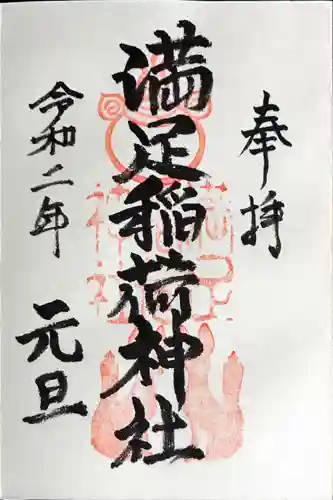 奉拝
満足稲荷神社
令和二年
元旦